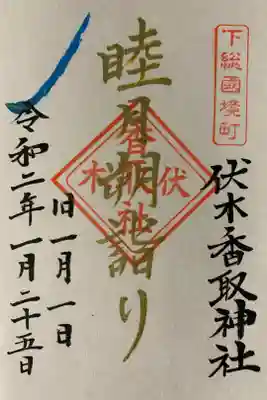 下総國境町
伏木香取神社
睦月朔詣り
香取
伏木
神社
旧一月一日
令和二年一月二十五日